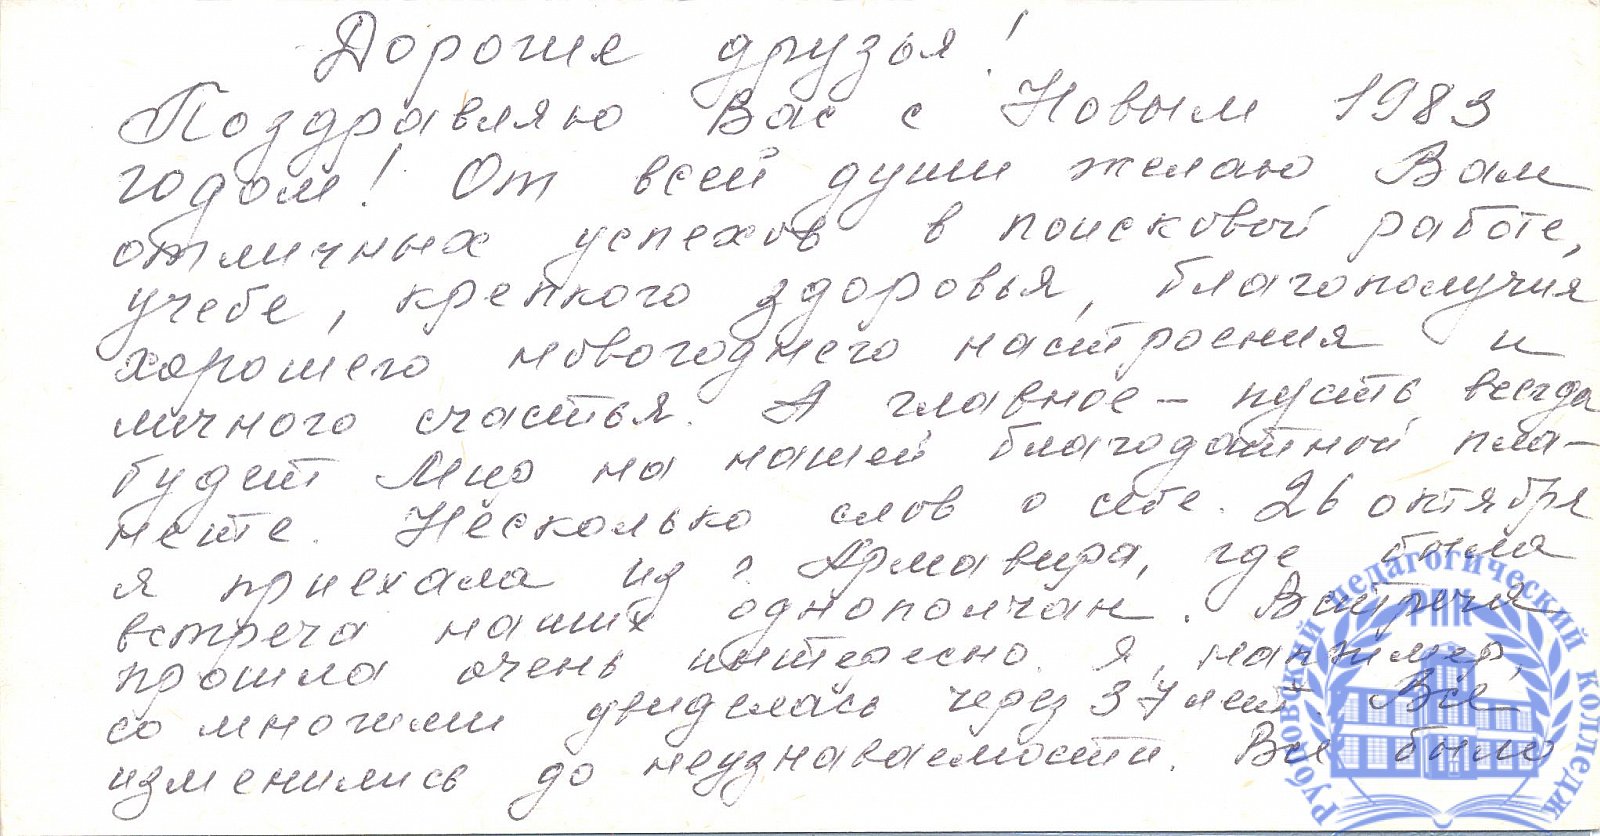 Дорогие друзья!
Поздравляю Вас с Новым 1983
годом! От всей души желаю Вам
отличных успехов в поисковой работе,
учебе, крепкого здоровья, благополучия
хорошего новогоднего настроения и
личного счастья. А главное – пусть всегда
будет Мир на нашей благодатной пла-
нете. Несколько слов о себе. 26 октября
я приехала из г. Армавира, где была
встреча наших однополчан. Встреча
прошла очень интересно. Я, например,
со многими увиделась через 37 лет. Все
изменились до неузнаваемости. Все было
Рубцовский педагогический колледж
РПК